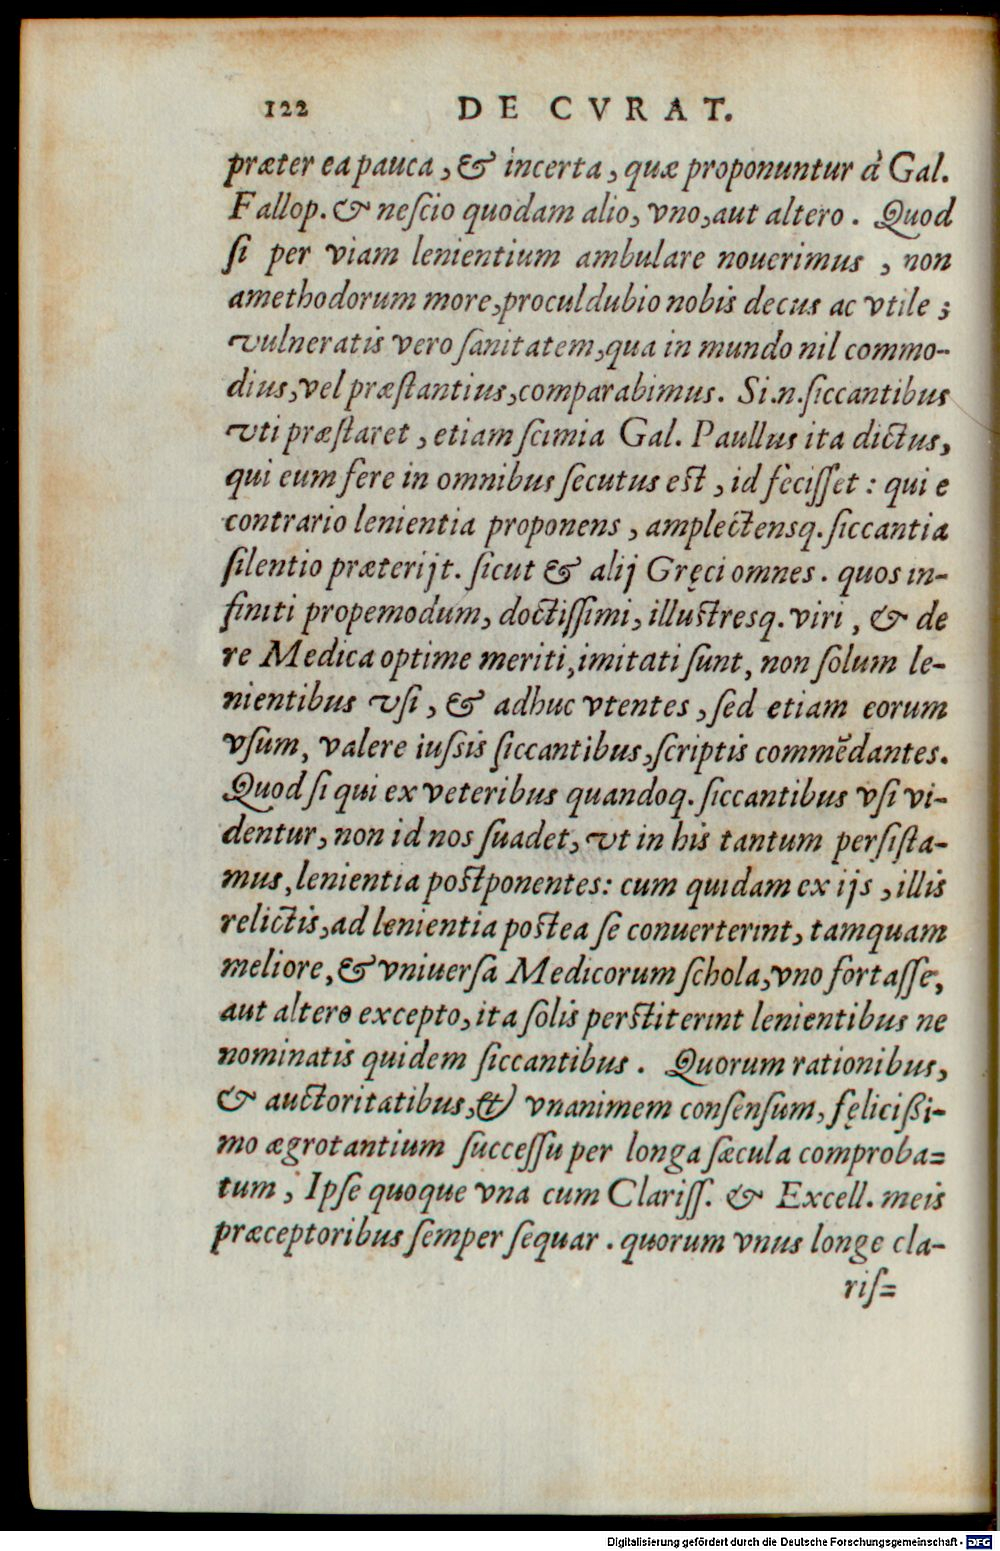 122 DE CVRAT.
præter ea pauca, & incerta, quæ proponuntur à Gal.
Fallop. & neſcio quodam alio, vno, aut altero. Quod
ſi per viam lenientium ambulare nouerimus, non
amethodorum more, proculdubio nobis decus ac vtile;
vulneratis vero ſanitatem, qua in mundo nil commo-
dius, vel præſtantius, comparabimus. Si .n. ſiccantibus
vti præſtaret, etiam ſcimia Gal. Paullus ita dictus,
qui eum fere in omnibus ſecutus est, id feciſſet: qui e
contrario lenientia proponens, amplectensq. ſiccantia
ſilentio præterijt. ſicut & alij Gręci omnes. quos in-
finiti propemodum, doctiſſimi, illustresq. viri, & de
re Medica optime meriti, imitati ſunt, non ſolum le-
nientibus vſi, & adhuc vtentes, ſed etiam eorum
vſum, valere iuſsis ſiccantibus, ſcriptis commẽdantes.
Quod ſi qui ex veteribus quandoq. ſiccantibus vſi vi-
dentur, non id nos ſuadet, vt in his tantum perſiſta-
mus, lenientia postponentes: cum quidam ex ijs, illis
relictis, ad lenientia postea ſe conuerterint, tamquam
meliore, & vniuerſa Medicorum ſchola, vno fortaſſe,
aut altero excepto, ita ſolis perstiterint lenientibus ne
nominatis quidem ſiccantibus. Quorum rationibus,
& auctoritatibus, & vnanimem conſenſum, fęlicißi-
mo ægrotantium ſucceſſu per longa ſæcula comproba=
tum, Ipſe quoque vna cum Clariſſ. & Excell. meis
præceptoribus ſemper ſequar. quorum vnus longe cla-
riſ=
Digitalisierung gefördert durch die Deutsche Forschungsgemeinschaft - DFG